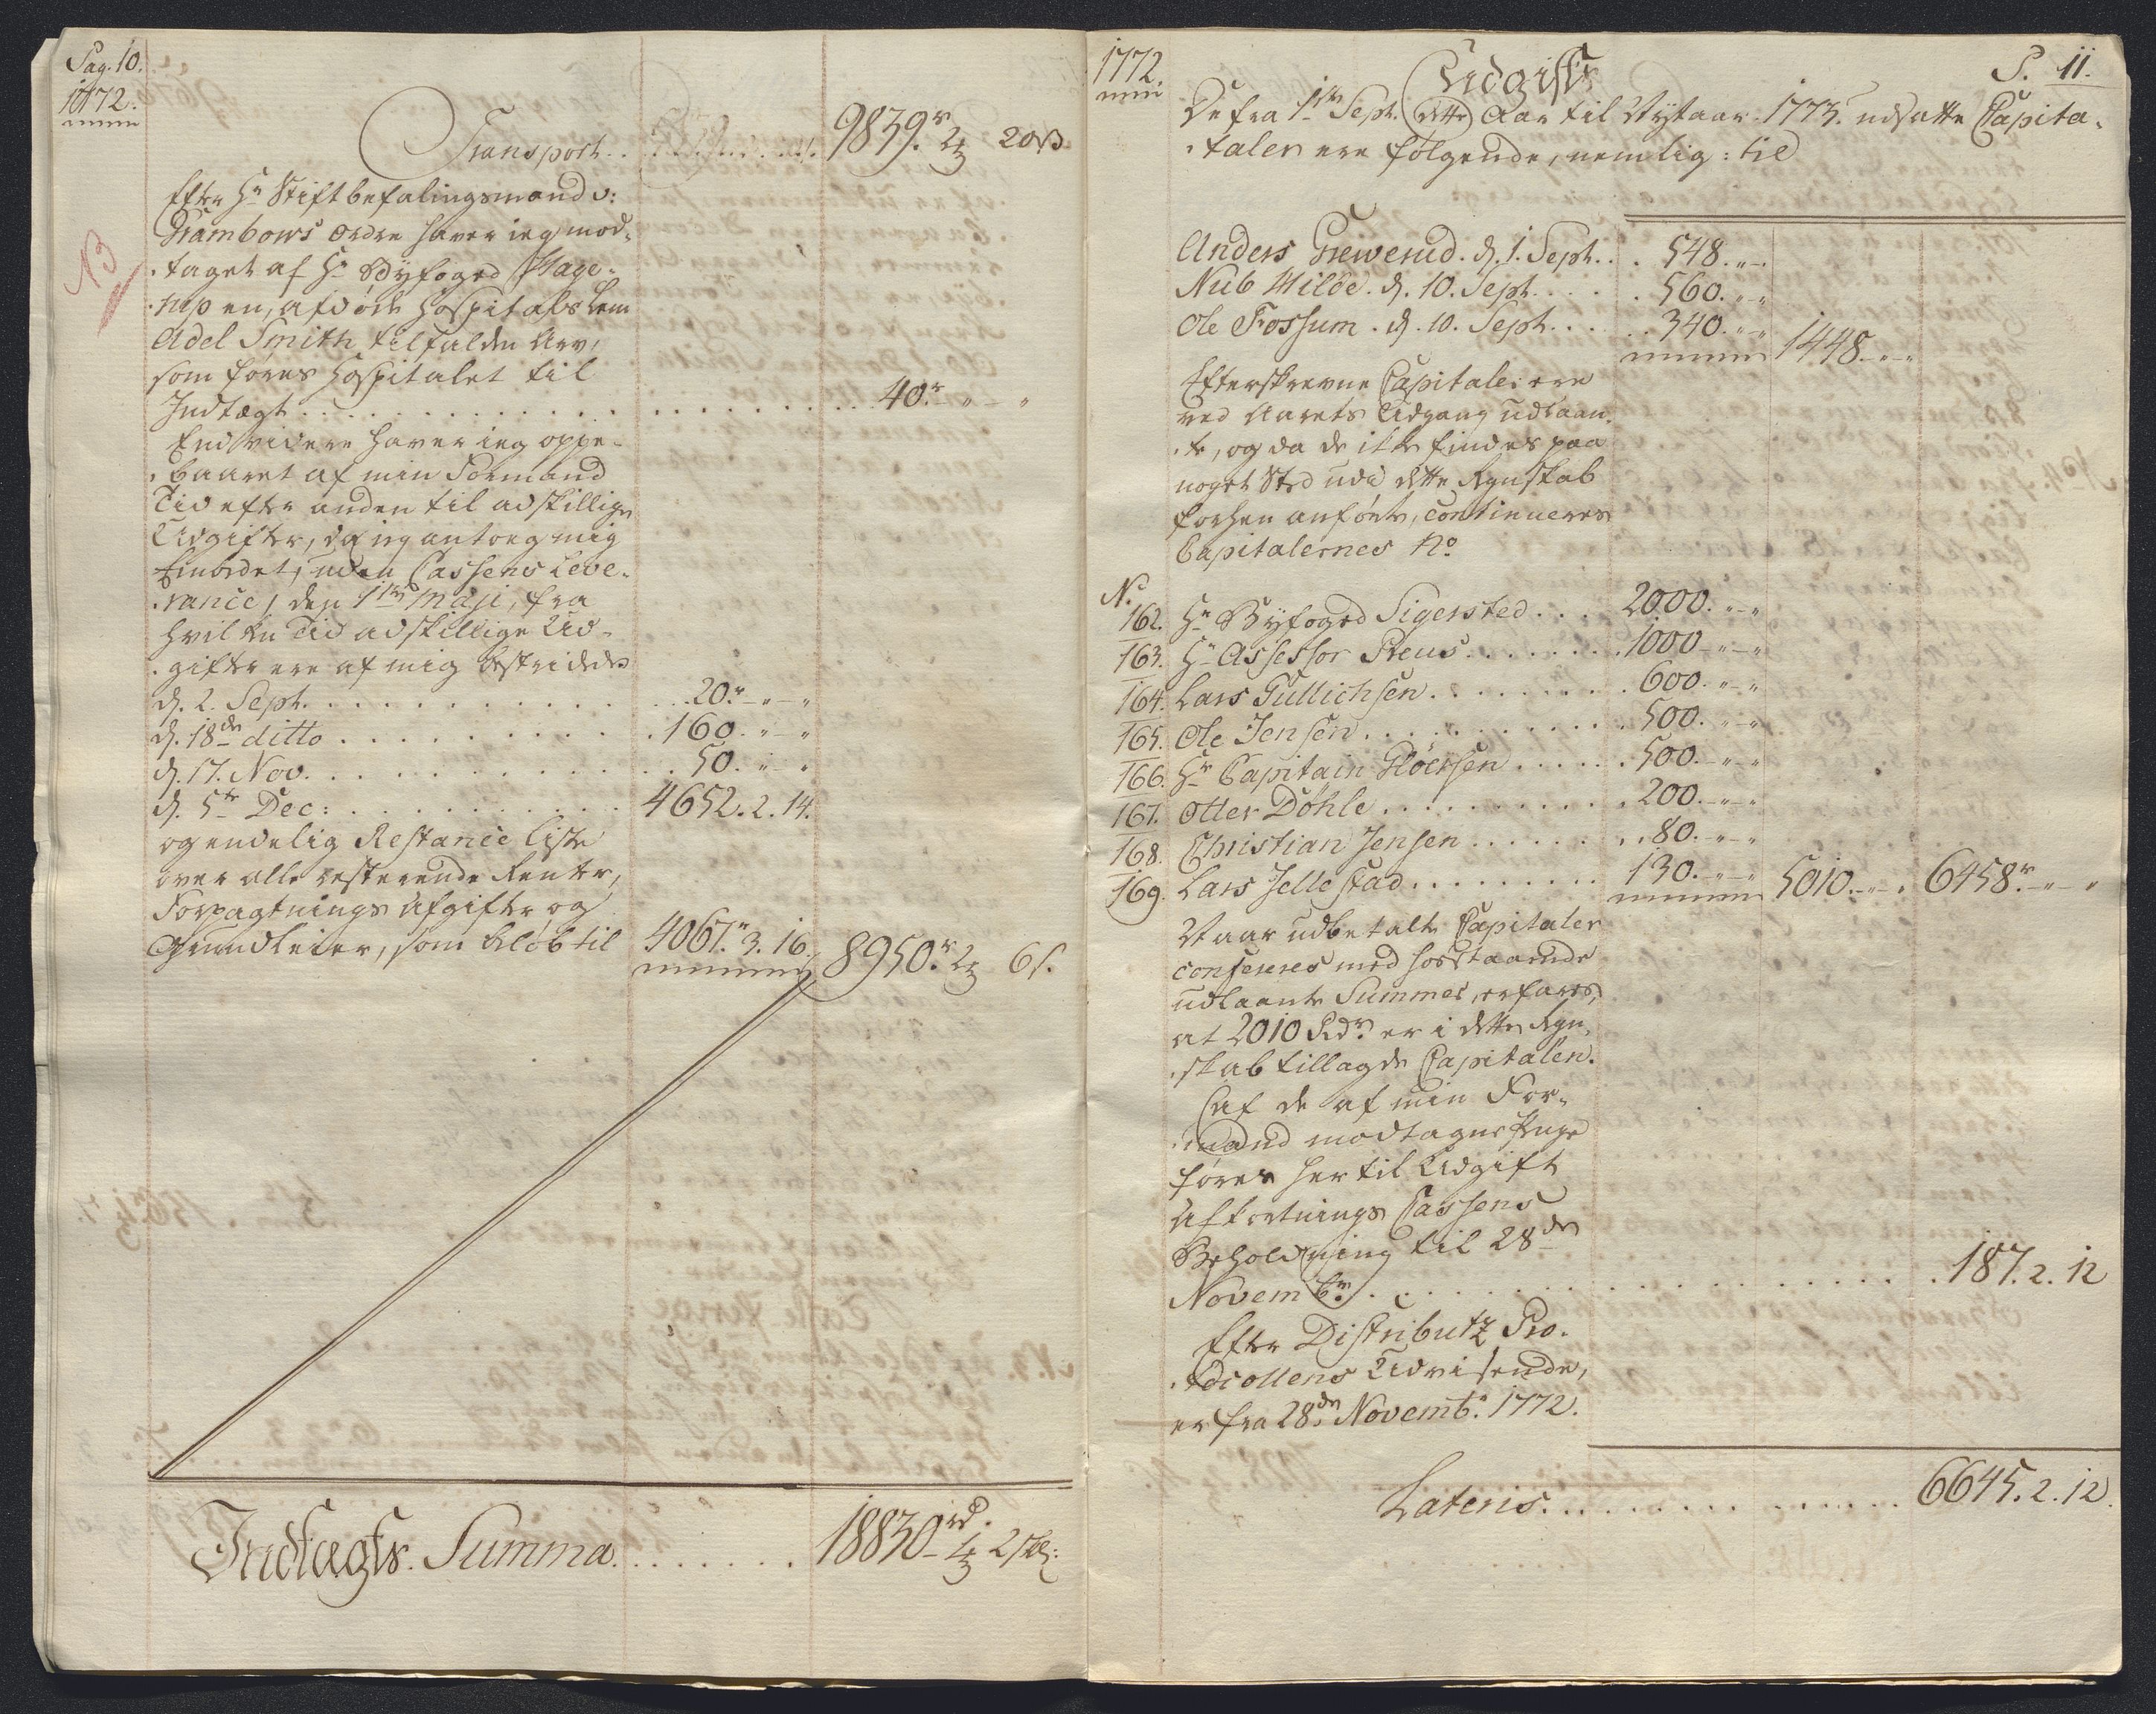 Pag. 10.
1772.
Transport . . . . 9839.r 2 ß 20 ß
Efter Hr Stiftbefalingsmand v:
Trambows Ordre haver ieg mod-
taget af Hr Byfoged Hage-
rup en, afdøde Hospitals Lem
Adel Smith tilfalden Arv,
som føres Hospitalet til
Indtægt . . . . . . 40.r - " - "
NB
Endvidere haver ieg oppe-
baaret af min Formand
Tid efter anden til adskillige
Udgifter, da ieg antoeg mig
Embedet, uden Cassens Leve-
rance, den 1ste Maji, fra
hvilken Tid adskillige Ud-
gifter ere af mig bestridede
d. 2. Sept. . . . . . 20.r - " - "
d. 18de ditto . . . . . . 160. " - "
d. 17. Nov. . . . . . 50. " - "
d. 5te Dec: . . . . . . 4652. 2. 14.
og endelig Restance Liste
over alle resterende Renter,
Forpagtnings Afgifter og
Grundleier, som beløb til 4067.r 3. 16. 8950.r 2 6 s.
Indtægts Summa . . . . . . 18830 rd. 2 sk:
1772.
Udgift
S. 11.
De fra 1ste Sept. dette Aar til Nytaar 1773. udsatte Capita-
taler ere følgende, nemlig: til
Anders Grewerud. d. 1. Sept. . . 548. " - "
Nub Wilde. d. 10. Sept. . . . 560. " - "
Ole Fossum. d. 10. Sept. . . . 340. " - " 1448. - " - "
Efterskrevne Capitaler ere
ved Aarets Udgang udlaan-
te, og da de ikke findes paa
noget Sted udi dette Regnskab
forhen anførte, continueres
Capitalernes No.
No.
162. Hr Byfoged Sigersted . . . 2000. " - "
163. Hr Assessor Preus . . . . . . 1000 - " - "
164. Lars Gullichsen . . . . . . 600. " - "
165. Ole Jensen . . . . . . 500. " - "
166. Hr Capitain Gløersen . . . . . 500. - " - "
167. Otter Döhle . . . . . . 200. - " - "
168. Christian Jensen . . . . . . 80. - " - "
169. Lars Jellestad . . . . . . 130. - " - " 5010. - " - . 6458.r - " - "
Naar udbetalte Capitaler
confereres med hosstaaende
udlaante Summer, erfares,
at 2010 Rdr. er i dette Regn-
skab tillagde Capitalen.
Af de af min For-
mand modtagne Penge
føres her til Udgift
Afkortnings Cassens
Beholdning til 28de
Novembr. . . . . . . 187. 2. 12
Efter Distributz Pro-
tocollens Udvisende,
er fra 28de Novemb. 1772.
Lateris . . . . . . 6645. 2. 12.